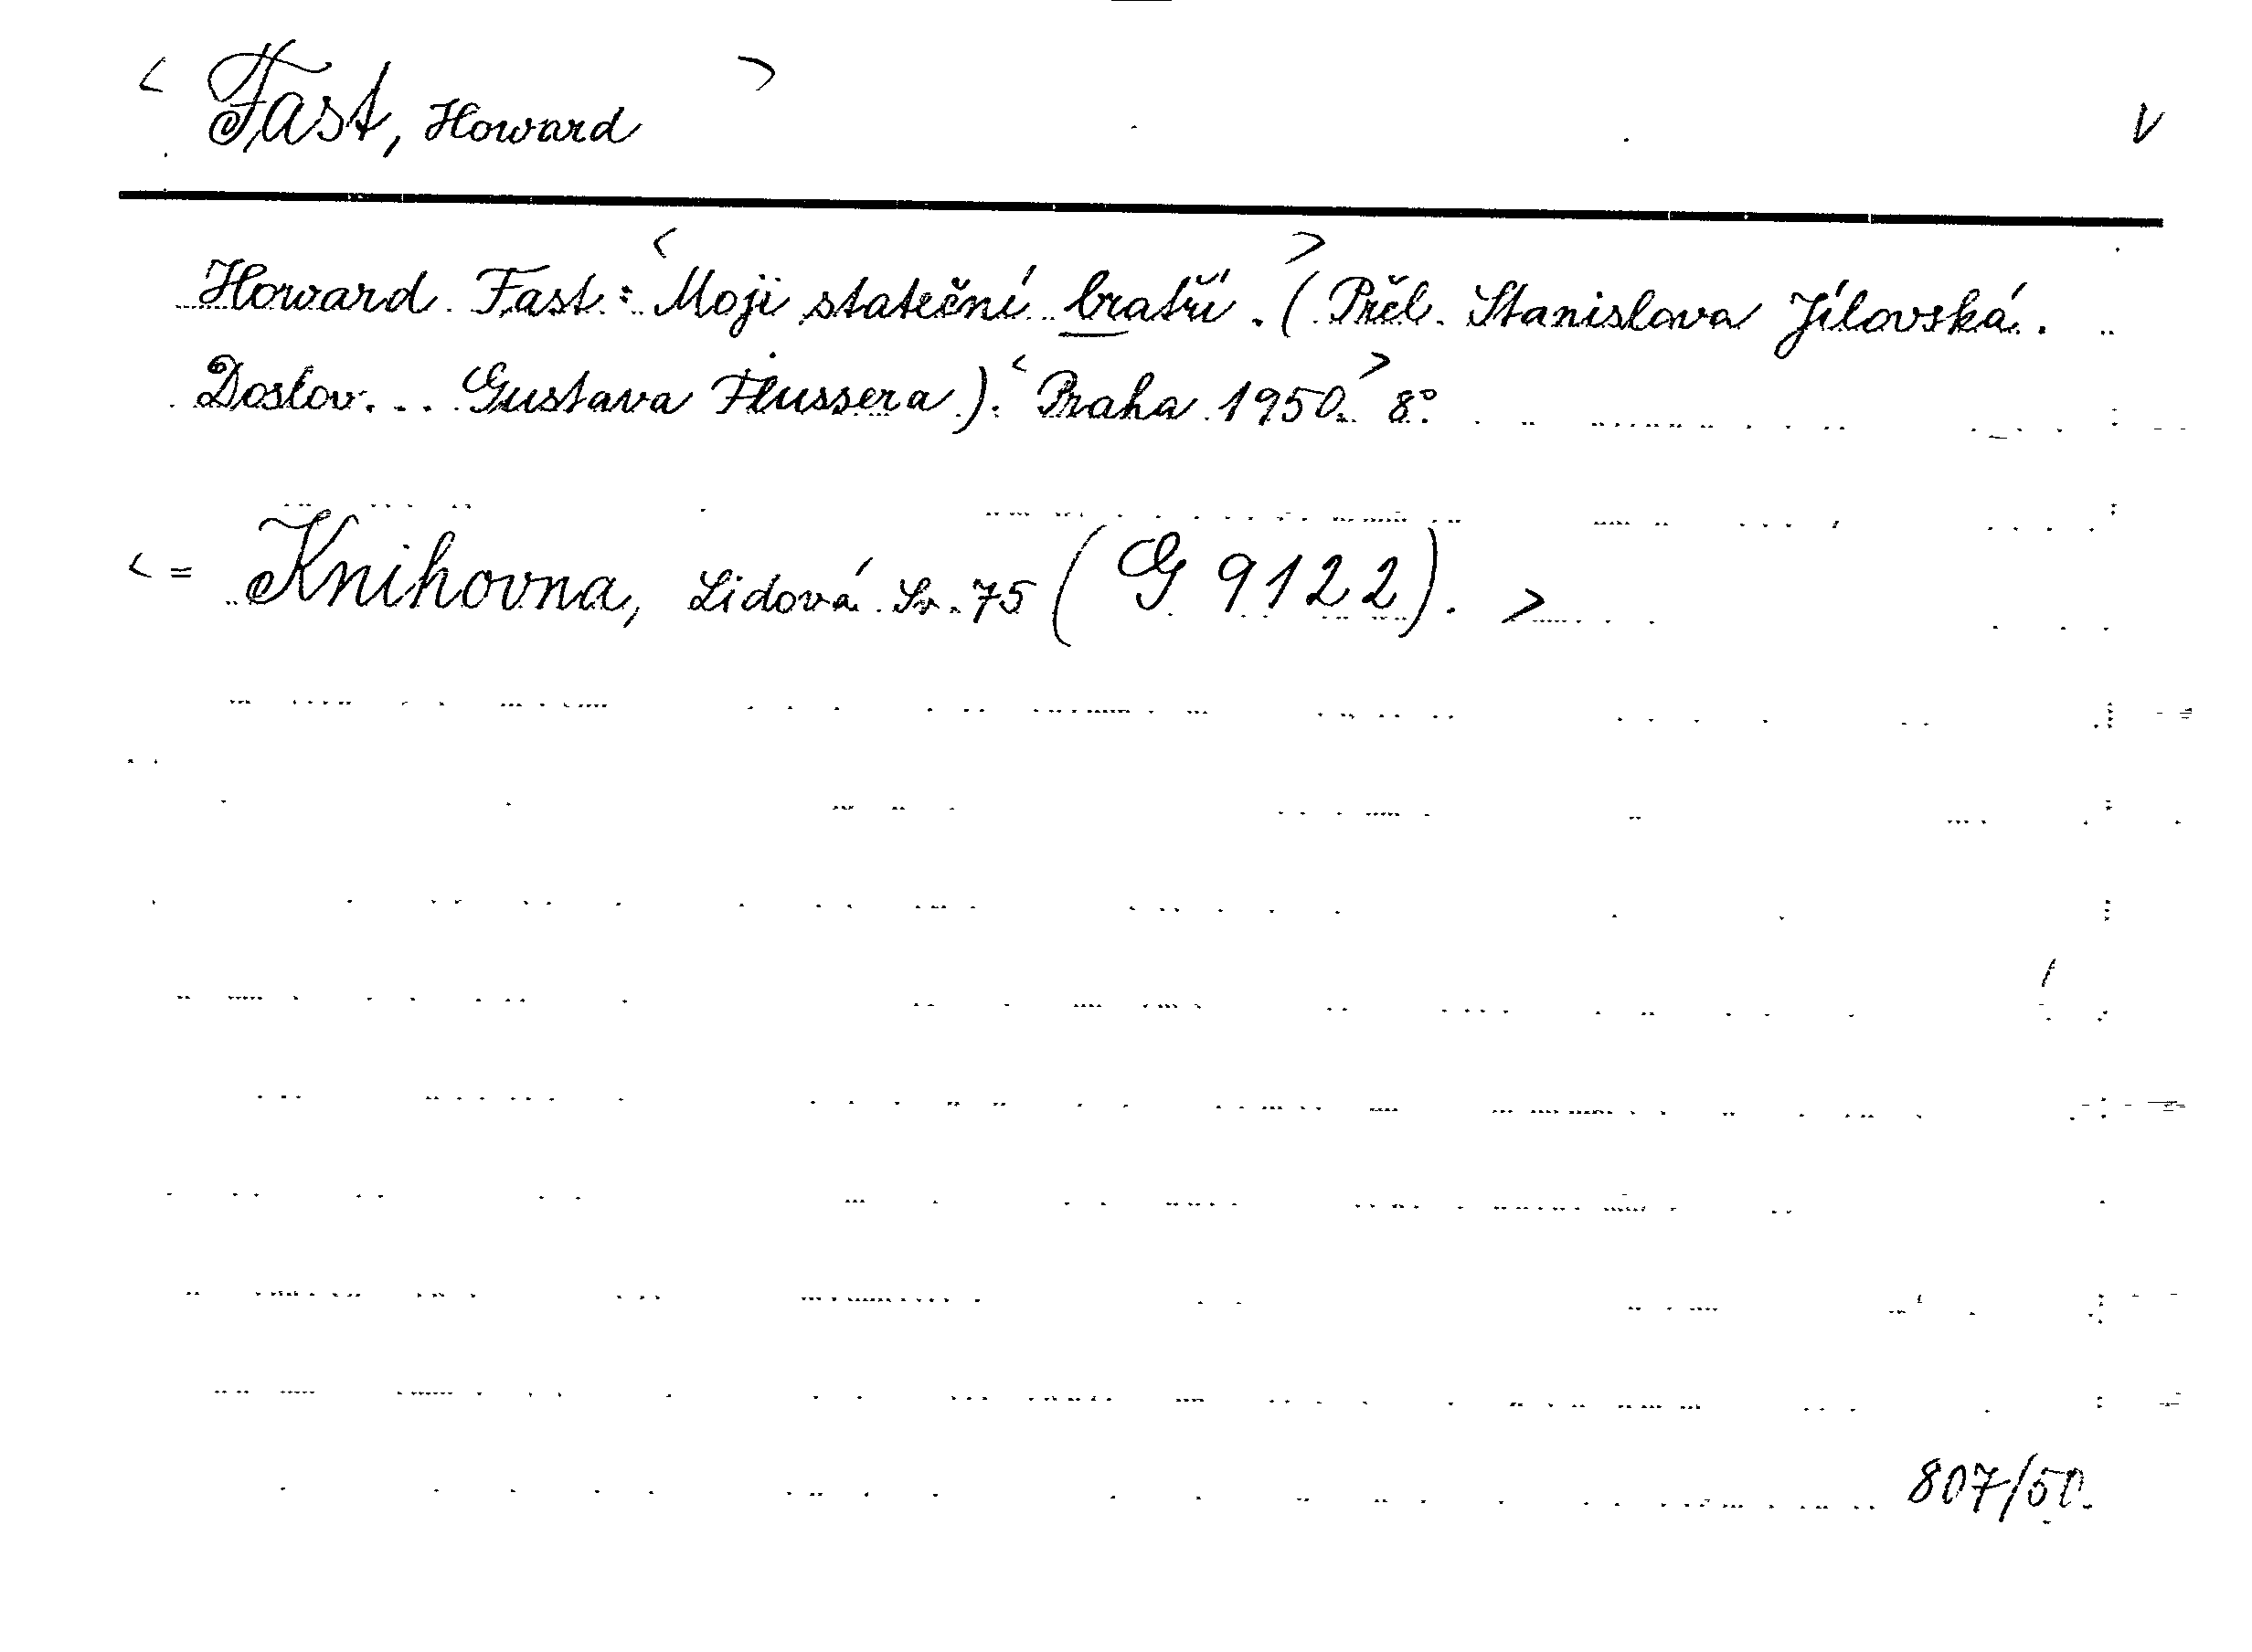 < Fast, Howard > V
Howard Fast: <Moji stateční bratří.> (Přel. Stanislava Jílovská.
Doslov... Gustava Flussera). <Praha 1950.> 8°.
< = Knihovna, Lidová. Sv. 75 (G 9122). >
807/50.